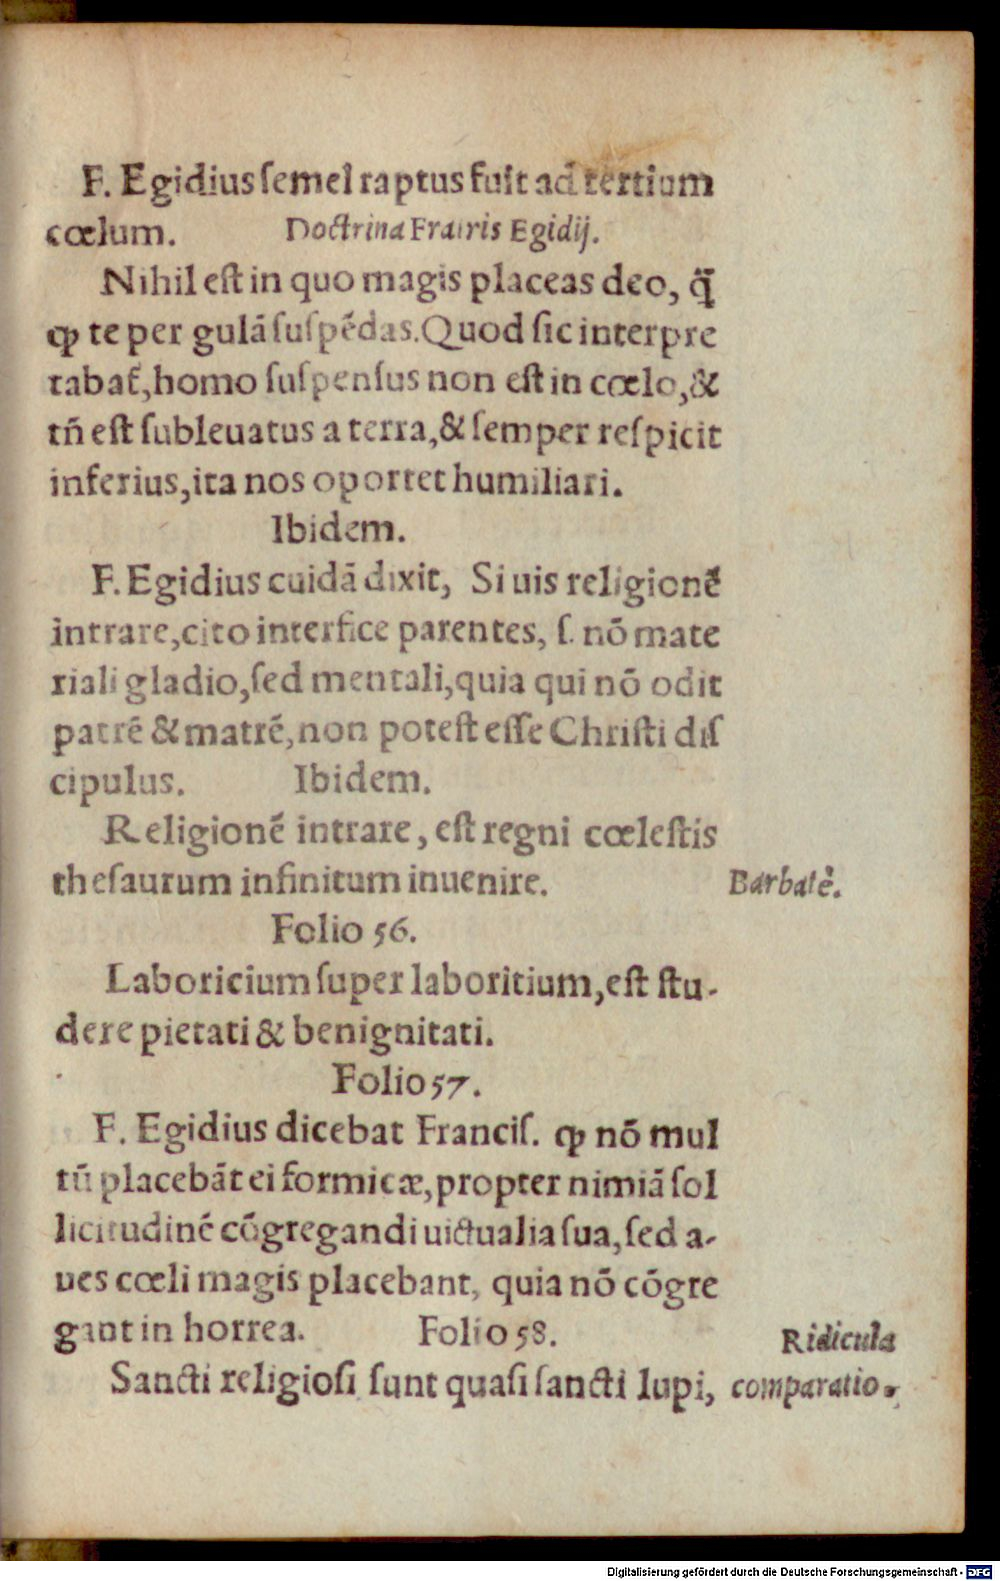 F. Egidius ſemel raptus fuit ad tertium
cœlum. Doctrina Fratris Egidij.
Nihil eſt in quo magis placeas deo, q̃
ꝙ te per gulã ſuſpẽdas. Quod ſic interpre
tabat̃, homo ſuſpenſus non eſt in cœlo, &
tñ eſt ſubleuatus a terra, & ſemper reſpicit
inferius, ita nos oportet humiliari.
Ibidem.
F. Egidius cuidã dixit, Si uis religionẽ
intrare, cito interfice parentes, ſ. nõ mate
riali gladio, ſed mentali, quia qui nõ odit
patrẽ & matrẽ, non poteſt eſſe Chriſti diſ
cipulus. Ibidem.
Religionẽ intrare, eſt regni cœleſtis
theſaurum infinitum inuenire. Barbatè.
Folio 56.
Laboricium ſuper laboritium, eſt ſtu-
dere pietati & benignitati.
Folio 57.
F. Egidius dicebat Franciſ. ꝙ nõ mul
tũ placebãt ei formicæ, propter nimiã ſol
licitudinẽ cõgregandi uictualia ſua, ſed a-
ues cœli magis placebant, quia nõ cõgre
gant in horrea. Folio 58. Ridicula
Sancti religioſi ſunt quaſi ſancti lupi, comparatio.
Digitalisierung gefördert durch die Deutsche Forschungsgemeinschaft - DFG